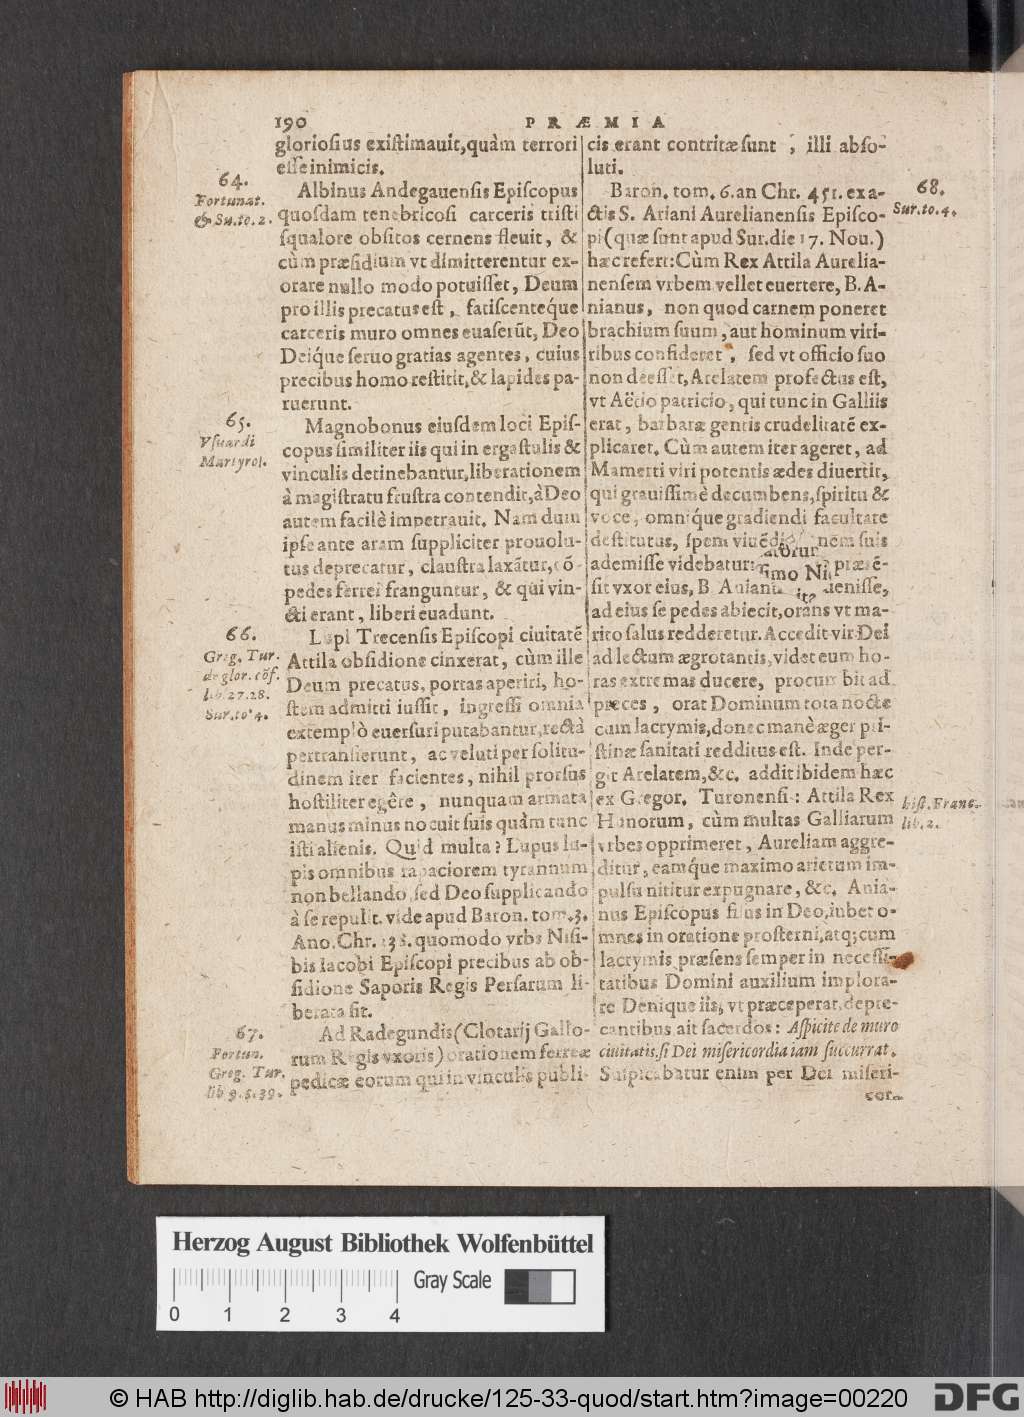 190 PRÆMIA
gloriosius existimauit, quàm terrori
esse inimicis.
64.
Fortunat.
& Su. to. 2.
Albinus Andegauensis Episcopus
quosdam tenebricosi carceris tristi
squalore obsitos cernens fleuit, &
cùm præsidium vt dimitterentur ex-
orare nullo modo potuisset, Deum
pro illis precatus est, fatiscentéque
carceris muro omnes euaserūt, Deo
Deíque seruo gratias agentes, cuius
precibus homo restitit, & lapides pa-
ruerunt.
65.
Vsuardi
Martyrol.
Magnobonus eiusdem loci Epis-
copus similiter iis qui in ergastulis &
vinculis detinebantur, liberationem
à magistratu frustra contendit, à Deo
autem facilè impetrauit. Nam dum
ipse ante aram suppliciter prouolu-
tus deprecatur, claustra laxātur, cō-
pedes ferrei franguntur, & qui vin-
cti erant, liberi euadunt.
66.
Greg. Tur.
de glor. cōf.
lib. 27. 28.
Sur. to. 4.
Lupi Trecensis Episcopi ciuitatē
Attila obsidione cinxerat, cùm ille
Deum precatus, portas aperiri, ho-
stem admitti iussit, ingressi omnia
extemplò euersuri putabantur, rectà
pertransierunt, ac veluti per solitu-
dinem iter facientes, nihil prorsus
hostiliter egêre, nunquam armata
manus minus nocuit suis quàm tunc
isti alienis. Quid multa? Lupus lu-
pis omnibus rapaciorem tyrannum
non bellando, sed Deo supplicando
à se repulit. vide apud Baron. tom. 3.
Ano. Chr. 338. quomodo vrbs Nisi-
bis Iacobi Episcopi precibus ab ob-
sidione Saporis Regis Persarum li-
berata sit.
67.
Fortun.
Greg. Tur.
lib 9. 5. 39.
Ad Radegundis (Clotarij Gallo-
rum Regis vxoris) orationem ferreæ
pedicæ eorum qui in vinculis publi-
cis erant contritæ sunt, illi abso-
luti.
68.
Sur. to. 4.
Baron. tom. 6. an Chr. 451. ex a-
ctis S. Ariani Aurelianensis Episco-
pi (quæ sunt apud Sur. die 17. Nou.)
hæc refert: Cùm Rex Attila Aurelia-
nensem vrbem vellet euertere, B. A-
nianus, non quod carnem poneret
brachium suum, aut hominum viri-
ribus confideret, sed vt officio suo
non deesset, Arelatem profectus est,
vt Aëtio patricio, qui tunc in Galliis
erat, barbaræ gentis crudelitatē ex-
plicaret. Cùm autem iter ageret, ad
Mamerti viri potentis ædes diuertit,
qui grauissimè decumbens, spiritu &
voce, omníque gradiendi facultate
destitutus, spem viuēdi nem suis
ademisse videbatur: præsē-
sit vxor eius, B. Aniani uenisse,
ad eius se pedes abiecit, orans vt ma-
rito salus redderetur. Accedit vir Dei
ad lectum ægrotantis, videt eum ho-
ras extremas ducere, procumbit ad
preces, orat Dominum tota nocte
cum lacrymis, donec manè æger pri-
stinæ sanitati redditus est. Inde per-
git Arelatem, &c. addit ibidem hæc
ex Gregor. Turonensi: Attila Rex
hist. Franc.
lib. 2.
Hunorum, cùm multas Galliarum
vrbes opprimeret, Aureliam aggre-
ditur, eámque maximo arietum im-
pulsu nititur expugnare, &c. Ania-
nus Episcopus fisus in Deo, iubet o-
mnes in oratione prosterni, atq; cum
lacrymis præsens semper in necessi-
tatibus Domini auxilium implora-
re Denique iis, vt præceperat, depre-
cantibus ait sacerdos: Aspicite de muro
ciuitatis, si Dei misericordia iam succurrat.
Suspicabatur enim per Dei miseri-
cor-
Herzog August Bibliothek Wolfenbüttel
0 1 2 3 4
Gray Scale
© HAB http://diglib.hab.de/drucke/125-33-quod/start.htm?image=00220
DFG